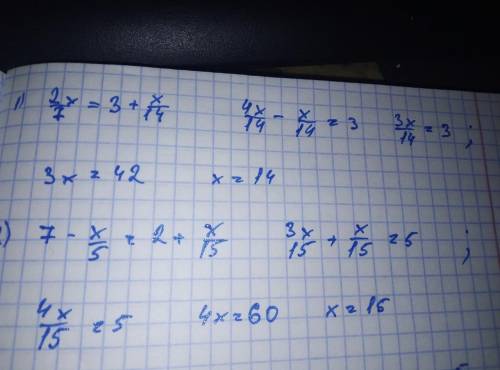 1) 2/7 x = 3 + x/14 4x/14 - x/14 = 3 3x/14 = 3 ;
3x = 42 x = 14
) 7 - x/5 = 2 + x/15 3x/15 + x/15 = 5 ;
4x/15 = 5 4x = 60 x = 15